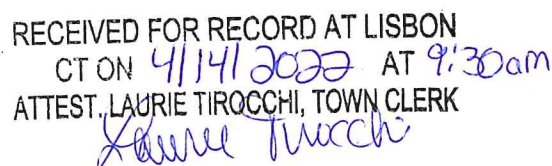 RECEIVED FOR RECORD AT LISBON
CT ON 4/14/2022 AT 9:30am
ATTEST. LAURIE TIROCCHI, TOWN CLERK
Laurie Tirocchi